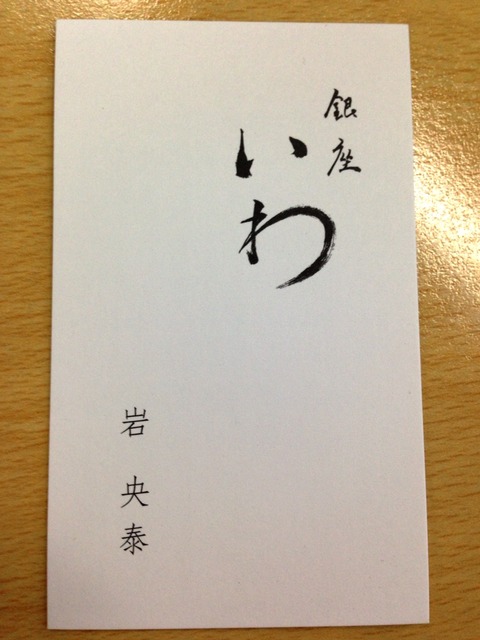 銀座
いわ
岩 央泰